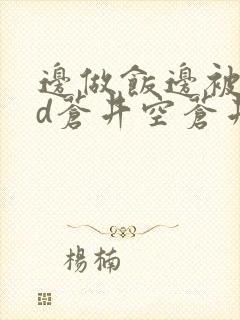 邊做飯邊被
d蒼井空蒼井
楊楠